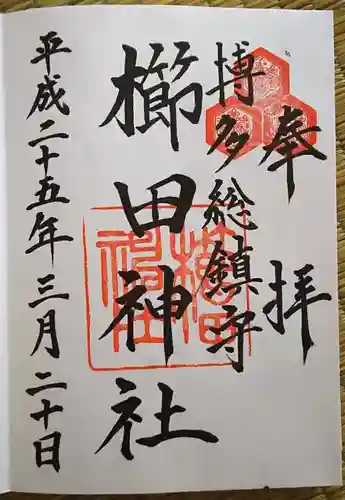 奉拝
博多総鎮守
櫛田神社
平成二十五年三月二十日